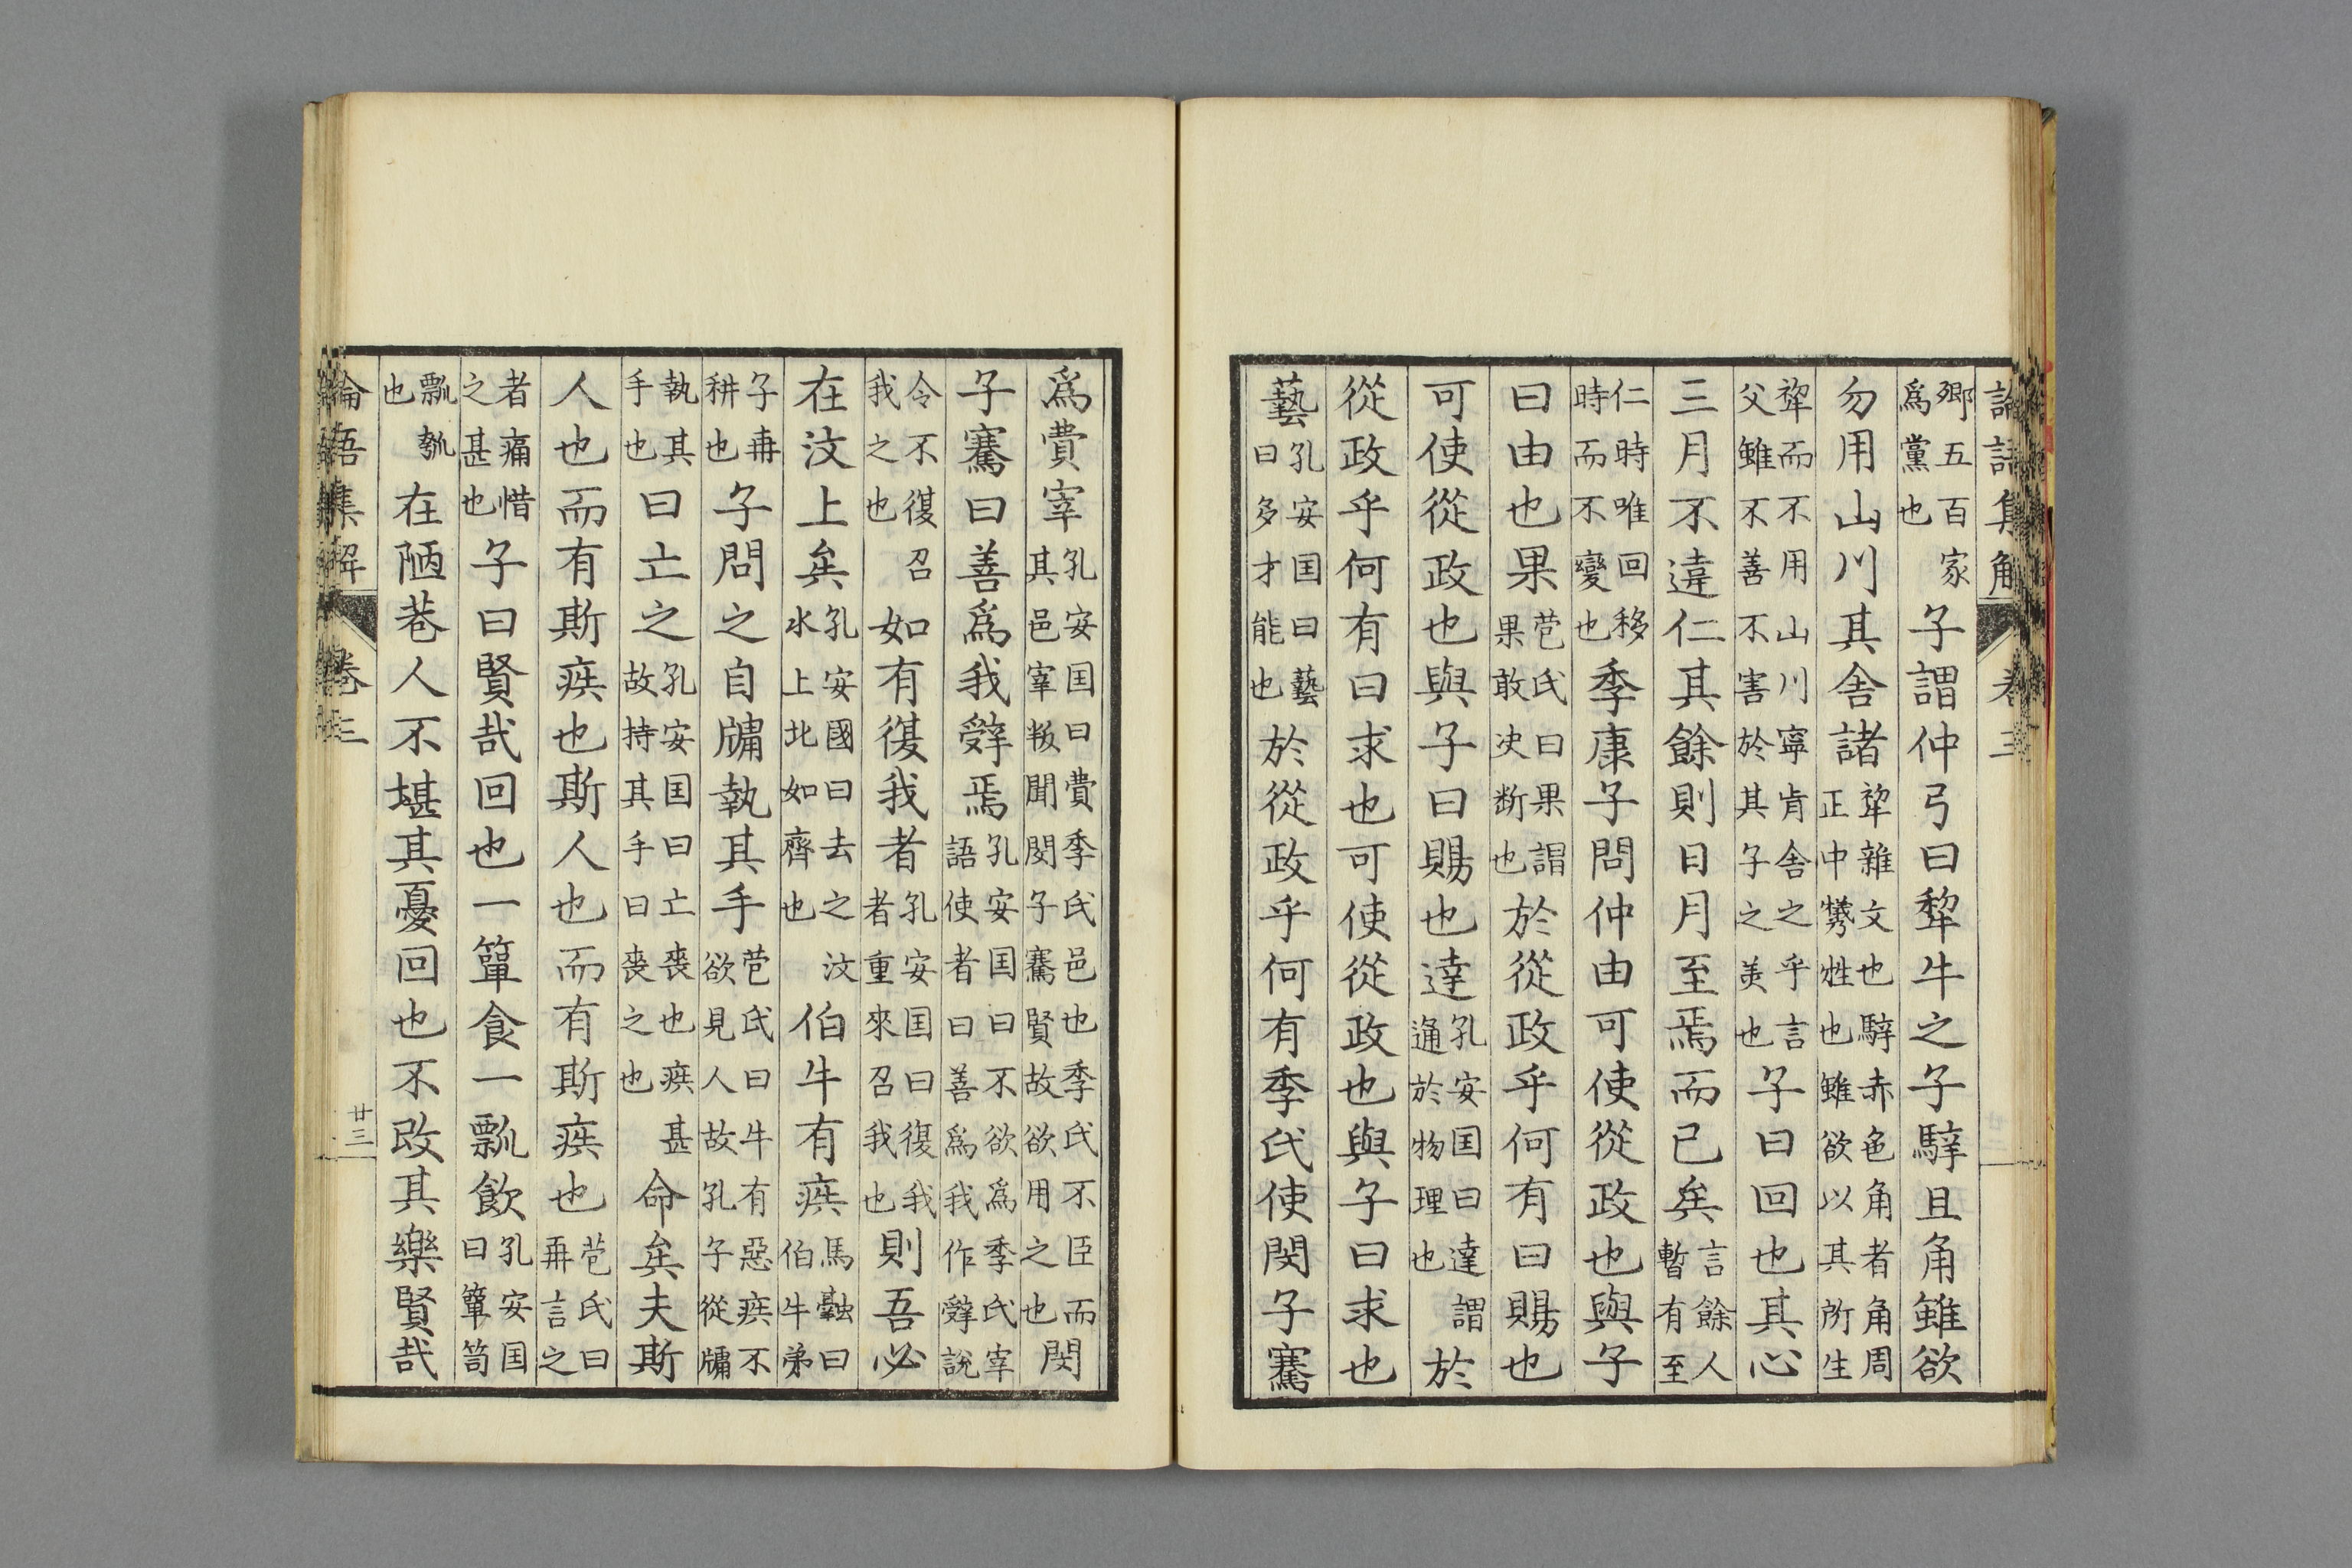 論語集解 卷三
鄉五百家爲黨也子謂仲弓曰犂牛之子騂且角雖欲
勿用山川其舍諸犂雜文也騂赤色角者角周正中犧牲也雖欲以其所生
犂而不用山川寧肯舍之乎言父雖不善不害於其子之美也子曰回也其心
三月不違仁其餘則日月至焉而已矣言餘人暫有至
仁時時唯回移時而不變也季康子問仲由可使從政也與子
曰由也果苞氏曰果謂果敢决断也於從政乎何有曰賜也
可使從政也與子曰賜也達孔安囯曰達謂通於物理也於
從政乎何有曰求也可使從政也與子曰求也
藝孔安囯曰藝曰多才能也於從政乎何有季氏使閔子騫
爲費宰孔安囯曰費季氏邑也季氏不臣而其邑宰叛聞閔子騫賢故欲用之也閔
子騫曰善爲我辤焉孔安囯曰不欲爲季氏宰語使者曰善爲我作辤說
令不復召我之也如有復我者孔安囯曰復我者重來召我也則吾必
在汶上矣孔安國曰去之汶水上北如齊也伯牛有疾馬融曰伯牛弟
子冉耕也子問之自牖執其手苞氏曰牛有惡疾不欲見人故孔子從牖
執其手也曰亡之孔安囯曰亡喪也疾甚故持其手曰喪之也命矣夫斯
人也而有斯疾也斯人也而有斯疾也苞氏曰再言之
者痛惜之甚也子曰賢哉回也一簞食一瓢飲孔安囯曰簞笥
瓢瓠也在陋巷人不堪其憂回也不改其樂賢哉
論語集解 卷三 廿三